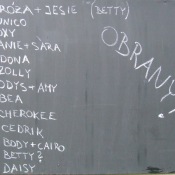 RÓZA + JESIE (BETTY)
UNICO
OXY
ANIE + SÁRA
DONA
ZOLLY
ODYS + AMY
BEA
CHEROKEE
CEDRIK
BODY + CAIRO
BETTY?
DAISY
OBRANY!